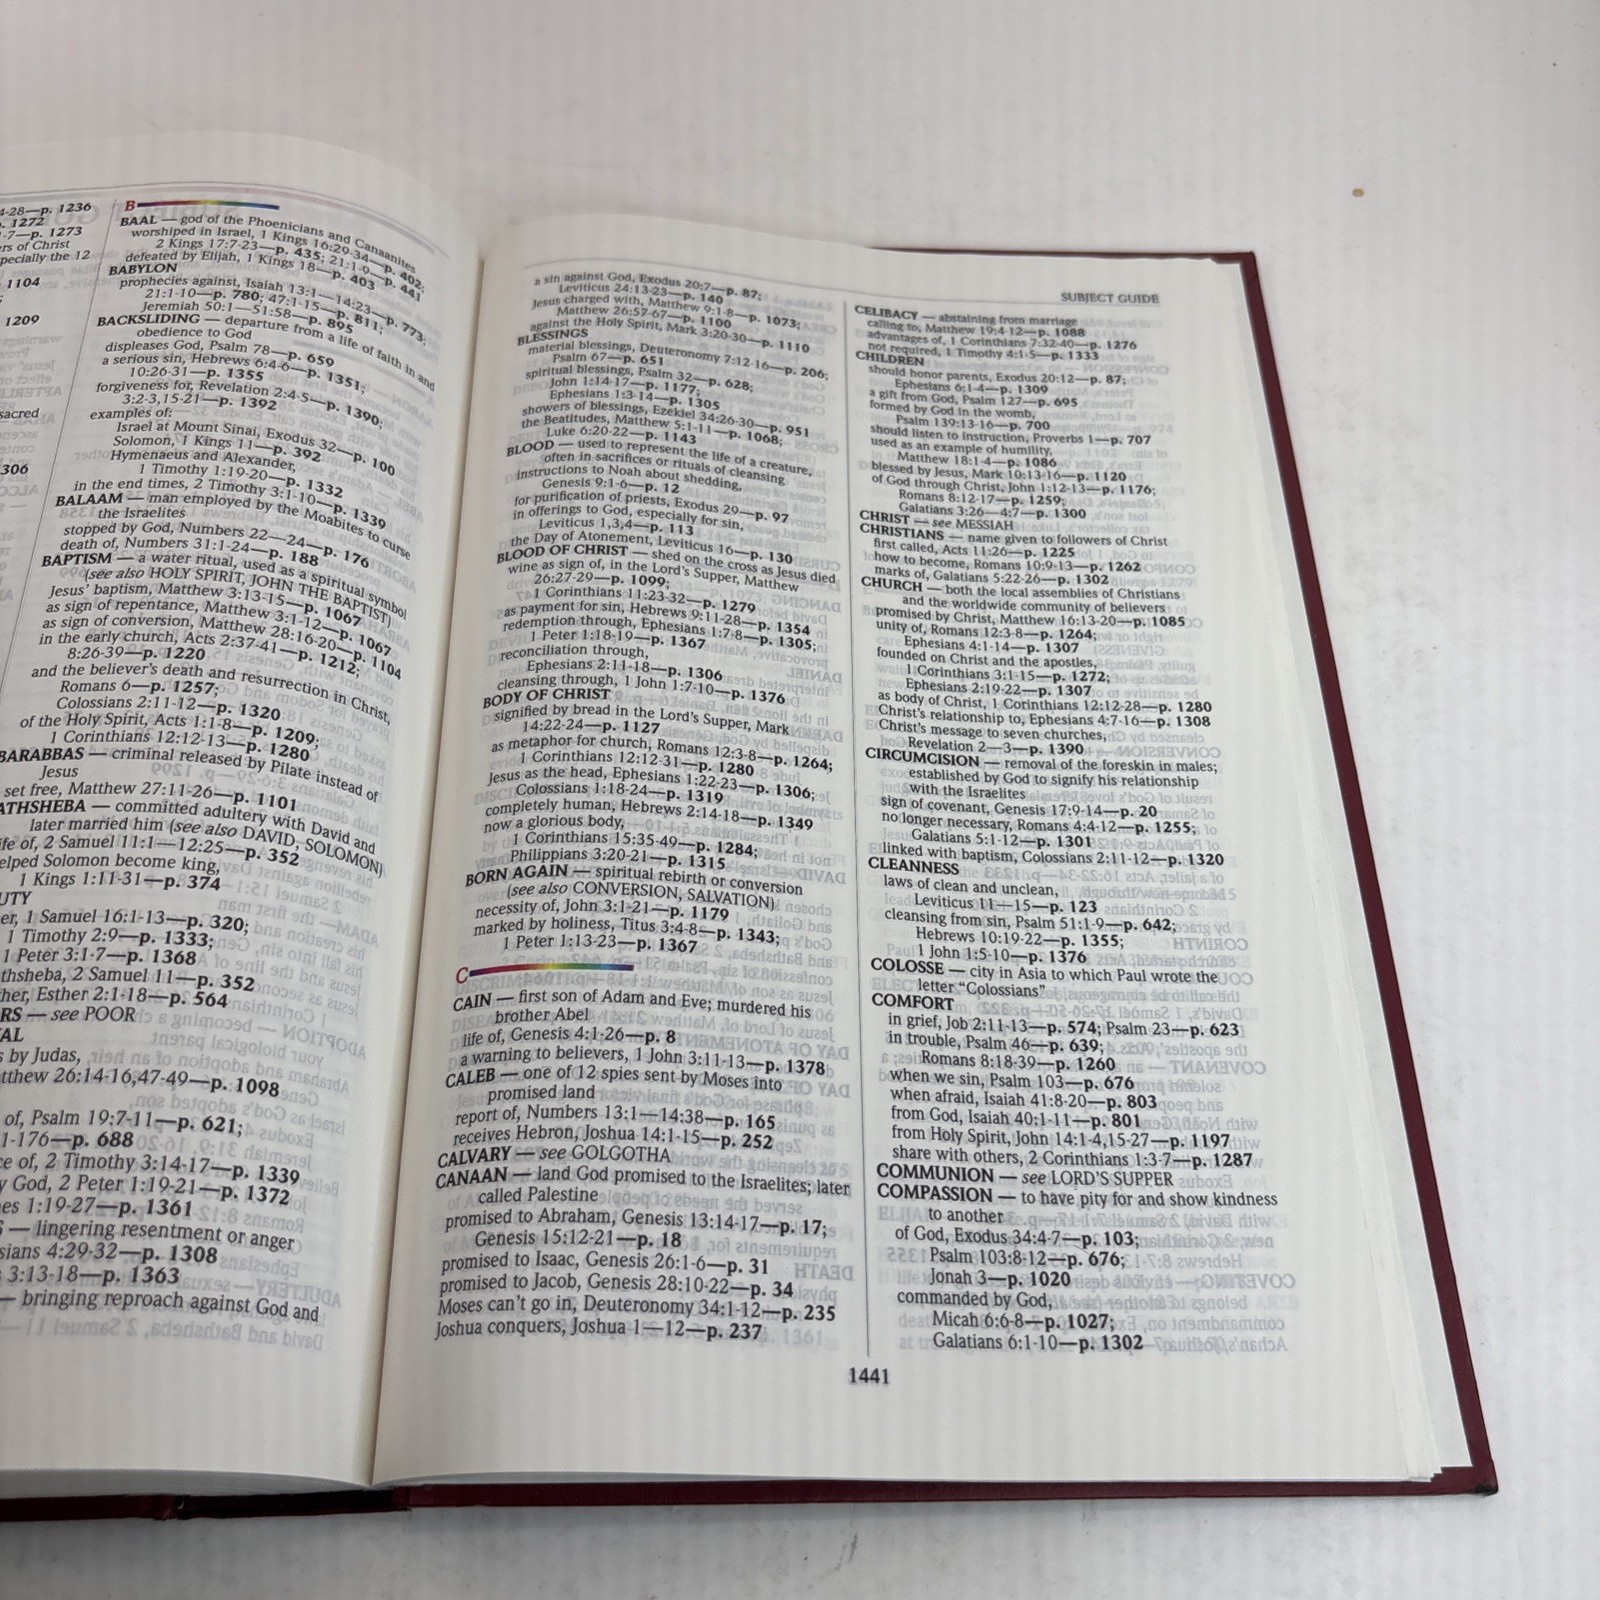 4-28—p. 1236
p. 1272
1-7—p. 1273
ers of Christ
pecially the 12
1104
1209
sacred
306
B
BAAL — god of the Phoenicians and Canaanites
worshiped in Israel, 1 Kings 16:29-34—p. 402;
2 Kings 17:7-23—p. 435; 21:1-9—p. 441
defeated by Elijah, 1 Kings 18—p. 403
BABYLON
prophecies against, Isaiah 13:1—14:23—p. 773;
21:1-10—p. 780; 47:1-15—p. 811;
Jeremiah 50:1—51:58—p. 895
BACKSLIDING — departure from a life of faith in and
obedience to God
displeases God, Psalm 78—p. 659
a serious sin, Hebrews 6:4-6—p. 1351;
10:26-31—p. 1355
forgiveness for, Revelation 2:4-5—p. 1390;
3:2-3,15-21—p. 1392
examples of:
Israel at Mount Sinai, Exodus 32—p. 100
Solomon, 1 Kings 11—p. 392
Hymenaeus and Alexander,
1 Timothy 1:19-20—p. 1332
in the end times, 2 Timothy 3:1-10—p. 1339
BALAAM — man employed by the Moabites to curse
the Israelites
stopped by God, Numbers 22—24—p. 176
death of, Numbers 31:1-24—p. 188
BAPTISM — a water ritual, used as a spiritual symbol
(see also HOLY SPIRIT, JOHN THE BAPTIST)
Jesus' baptism, Matthew 3:13-15—p. 1067
as sign of repentance, Matthew 3:1-12—p. 1067
as sign of conversion, Matthew 28:16-20—p. 1104
in the early church, Acts 2:37-41—p. 1212;
8:26-39—p. 1220
and the believer's death and resurrection in Christ,
Romans 6—p. 1257;
Colossians 2:11-12—p. 1320
of the Holy Spirit, Acts 1:1-8—p. 1209;
1 Corinthians 12:12-13—p. 1280
BARABBAS — criminal released by Pilate instead of
Jesus
set free, Matthew 27:11-26—p. 1101
ATHSHEBA — committed adultery with David and
later married him (see also DAVID, SOLOMON)
ife of, 2 Samuel 11:1—12:25—p. 352
elped Solomon become king,
1 Kings 1:11-31—p. 374
UTY
er, 1 Samuel 16:1-13—p. 320;
1 Timothy 2:9—p. 1333;
1 Peter 3:1-7—p. 1368
thsheba, 2 Samuel 11—p. 352
her, Esther 2:1-18—p. 564
RS — see POOR
AL
s by Judas,
tthew 26:14-16,47-49—p. 1098
of, Psalm 19:7-11—p. 621;
1-176—p. 688
ce of, 2 Timothy 3:14-17—p. 1339
y God, 2 Peter 1:19-21—p. 1372
es 1:19-27—p. 1361
S — lingering resentment or anger
sians 4:29-32—p. 1308
3:13-18—p. 1363
— bringing reproach against God and
SUBJECT GUIDE
a sin against God, Exodus 20:7—p. 87;
Leviticus 24:13-23—p. 140
Jesus charged with, Matthew 9:1-8—p. 1073;
Matthew 26:57-67—p. 1100
against the Holy Spirit, Mark 3:20-30—p. 1110
BLESSINGS
material blessings, Deuteronomy 7:12-16—p. 206;
Psalm 67—p. 651
spiritual blessings, Psalm 32—p. 628;
John 1:14-17—p. 1177;
Ephesians 1:3-14—p. 1305
showers of blessings, Ezekiel 34:26-30—p. 951
the Beatitudes, Matthew 5:1-11—p. 1068;
Luke 6:20-22—p. 1143
BLOOD — used to represent the life of a creature,
often in sacrifices or rituals of cleansing
instructions to Noah about shedding,
Genesis 9:1-6—p. 12
for purification of priests, Exodus 29—p. 97
in offerings to God, especially for sin,
Leviticus 1,3,4—p. 113
the Day of Atonement, Leviticus 16—p. 130
BLOOD OF CHRIST — shed on the cross as Jesus died
wine as sign of, in the Lord's Supper, Matthew
26:27-29—p. 1099;
1 Corinthians 11:23-32—p. 1279
as payment for sin, Hebrews 9:11-28—p. 1354
redemption through, Ephesians 1:7-8—p. 1305;
1 Peter 1:18-19—p. 1367
reconciliation through,
Ephesians 2:11-18—p. 1306
cleansing through, 1 John 1:7-10—p. 1376
BODY OF CHRIST
signified by bread in the Lord's Supper, Mark
14:22-24—p. 1127
as metaphor for church, Romans 12:3-8—p. 1264;
1 Corinthians 12:12-31—p. 1280
Jesus as the head, Ephesians 1:22-23—p. 1306;
Colossians 1:18-24—p. 1319
completely human, Hebrews 2:14-18—p. 1349
now a glorious body,
1 Corinthians 15:35-49—p. 1284;
Philippians 3:20-21—p. 1315
BORN AGAIN — spiritual rebirth or conversion
(see also CONVERSION, SALVATION)
necessity of, John 3:1-21—p. 1179
marked by holiness, Titus 3:4-8—p. 1343;
1 Peter 1:13-23—p. 1367
C
CAIN — first son of Adam and Eve; murdered his
brother Abel
life of, Genesis 4:1-26—p. 8
a warning to believers, 1 John 3:11-13—p. 1378
CALEB — one of 12 spies sent by Moses into
promised land
report of, Numbers 13:1—14:38—p. 165
receives Hebron, Joshua 14:1-15—p. 252
CALVARY — see GOLGOTHA
CANAAN — land God promised to the Israelites; later
called Palestine
promised to Abraham, Genesis 13:14-17—p. 17;
Genesis 15:12-21—p. 18
promised to Isaac, Genesis 26:1-6—p. 31
promised to Jacob, Genesis 28:10-22—p. 34
Moses can't go in, Deuteronomy 34:1-12—p. 235
Joshua conquers, Joshua 1—12—p. 237
CELIBACY — abstaining from marriage
calling to, Matthew 19:4-12—p. 1088
advantages of, 1 Corinthians 7:32-40—p. 1276
not required, 1 Timothy 4:1-5—p. 1333
CHILDREN
should honor parents, Exodus 20:12—p. 87;
Ephesians 6:1-4—p. 1309
a gift from God, Psalm 127—p. 695
formed by God in the womb,
Psalm 139:13-16—p. 700
should listen to instruction, Proverbs 1—p. 707
used as an example of humility,
Matthew 18:1-4—p. 1086
blessed by Jesus, Mark 10:13-16—p. 1120
of God through Christ, John 1:12-13—p. 1176;
Romans 8:12-17—p. 1259;
Galatians 3:26—4:7—p. 1300
CHRIST — see MESSIAH
CHRISTIANS — name given to followers of Christ
first called, Acts 11:26—p. 1225
how to become, Romans 10:9-13—p. 1262
marks of, Galatians 5:22-26—p. 1302
CHURCH — both the local assemblies of Christians
and the worldwide community of believers
promised by Christ, Matthew 16:13-20—p. 1085
unity of, Romans 12:3-8—p. 1264;
Ephesians 4:1-14—p. 1307
founded on Christ and the apostles,
1 Corinthians 3:1-15—p. 1272;
Ephesians 2:19-22—p. 1307
as body of Christ, 1 Corinthians 12:12-28—p. 1280
Christ's relationship to, Ephesians 4:7-16—p. 1308
Christ's message to seven churches,
Revelation 2—3—p. 1390
CIRCUMCISION — removal of the foreskin in males;
established by God to signify his relationship
with the Israelites
sign of covenant, Genesis 17:9-14—p. 20
no longer necessary, Romans 4:4-12—p. 1255;
Galatians 5:1-12—p. 1301
linked with baptism, Colossians 2:11-12—p. 1320
CLEANNESS
laws of clean and unclean,
Leviticus 11—15—p. 123
cleansing from sin, Psalm 51:1-9—p. 642;
Hebrews 10:19-22—p. 1355;
1 John 1:5-10—p. 1376
COLOSSE — city in Asia to which Paul wrote the
letter "Colossians"
COMFORT
in grief, Job 2:11-13—p. 574; Psalm 23—p. 623
in trouble, Psalm 46—p. 639;
Romans 8:18-39—p. 1260
when we sin, Psalm 103—p. 676
when afraid, Isaiah 41:8-20—p. 803
from God, Isaiah 40:1-11—p. 801
from Holy Spirit, John 14:1-4,15-27—p. 1197
share with others, 2 Corinthians 1:3-7—p. 1287
COMMUNION — see LORD'S SUPPER
COMPASSION — to have pity for and show kindness
to another
of God, Exodus 34:4-7—p. 103;
Psalm 103:8-12—p. 676;
Jonah 3—p. 1020
commanded by God,
Micah 6:6-8—p. 1027;
Galatians 6:1-10—p. 1302
1441